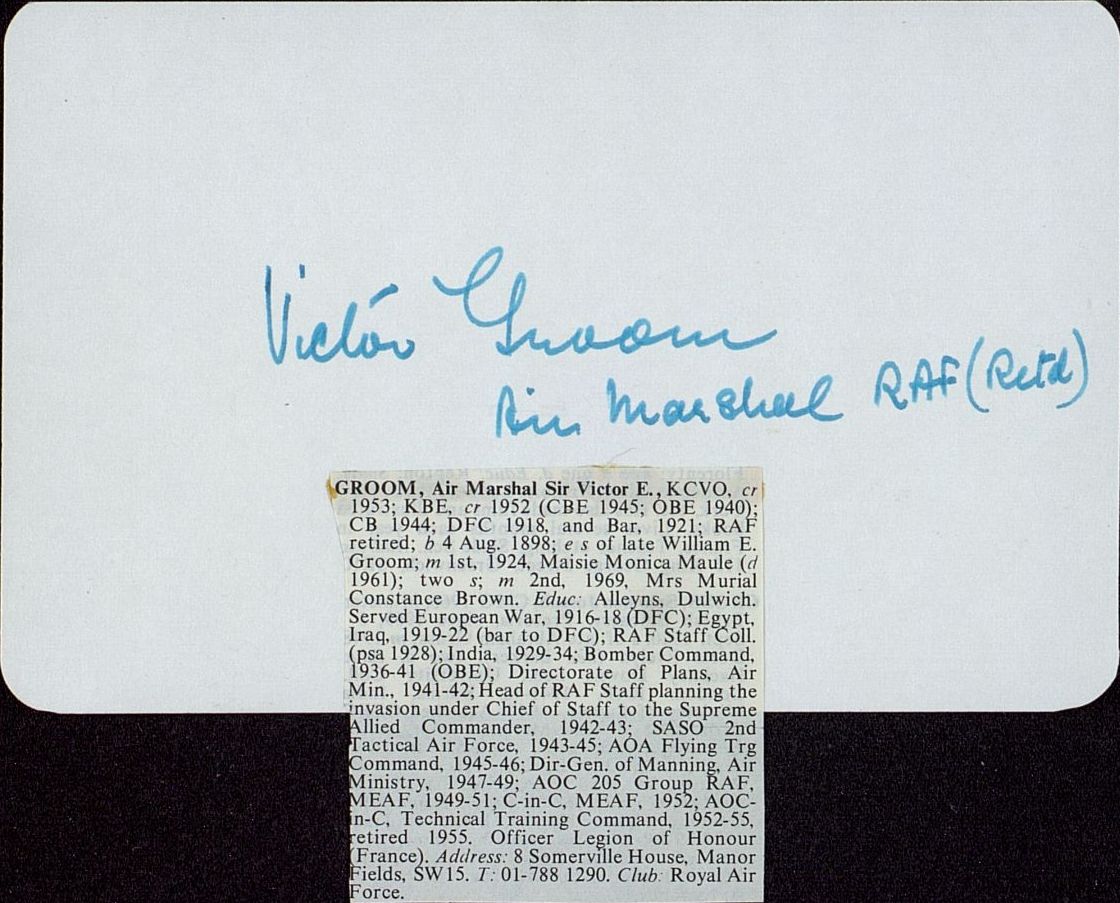 Victor Groom
Air Marshal RAF (Retd)
GROOM, Air Marshal Sir Victor E., KCVO, cr
1953; KBE, cr 1952 (CBE 1945; OBE 1940);
CB 1944; DFC 1918, and Bar, 1921; RAF
retired; b 4 Aug. 1898; e s of late William E.
Groom; m 1st, 1924, Maisie Monica Maule (d
1961); two s; m 2nd, 1969, Mrs Murial
Constance Brown. Educ: Alleyns, Dulwich.
Served European War, 1916-18 (DFC); Egypt,
Iraq, 1919-22 (bar to DFC); RAF Staff Coll.
(psa 1928); India, 1929-34; Bomber Command,
1936-41 (OBE); Directorate of Plans, Air
Min., 1941-42; Head of RAF Staff planning the
invasion under Chief of Staff to the Supreme
Allied Commander, 1942-43; SASO 2nd
Tactical Air Force, 1943-45; AOA Flying Trg
Command, 1945-46; Dir-Gen. of Manning, Air
Ministry, 1947-49; AOC 205 Group RAF,
MEAF, 1949-51; C-in-C, MEAF, 1952; AOC-
in-C, Technical Training Command, 1952-55,
retired 1955. Officer Legion of Honour
(France). Address: 8 Somerville House, Manor
Fields, SW15. T: 01-788 1290. Club: Royal Air
Force.